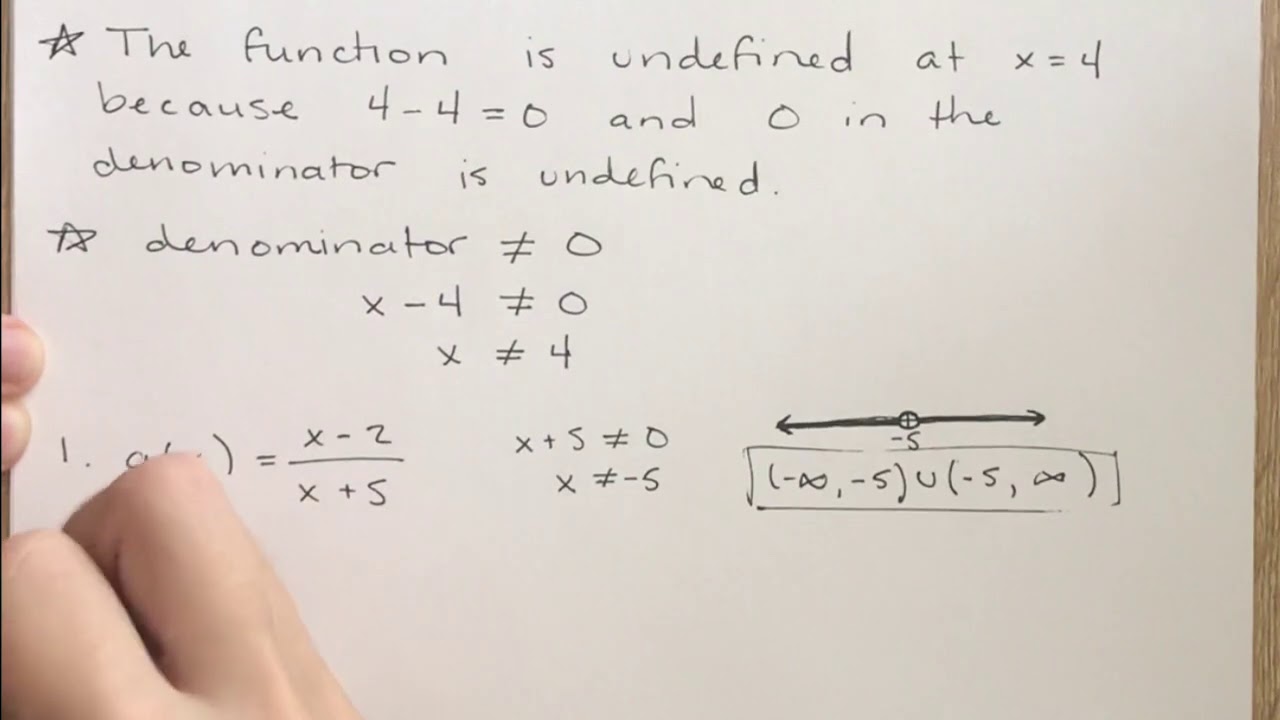 ☆ The function is undefined at x = 4
because 4 - 4 = 0 and 0 in the
denominator is undefined.
☆ denominator ≠ 0
x - 4 ≠ 0
x ≠ 4
1. ) = x - 2 / x + 5
x + 5 ≠ 0
x ≠ -5
-5
(-∞, -5) ∪ (-5, ∞)